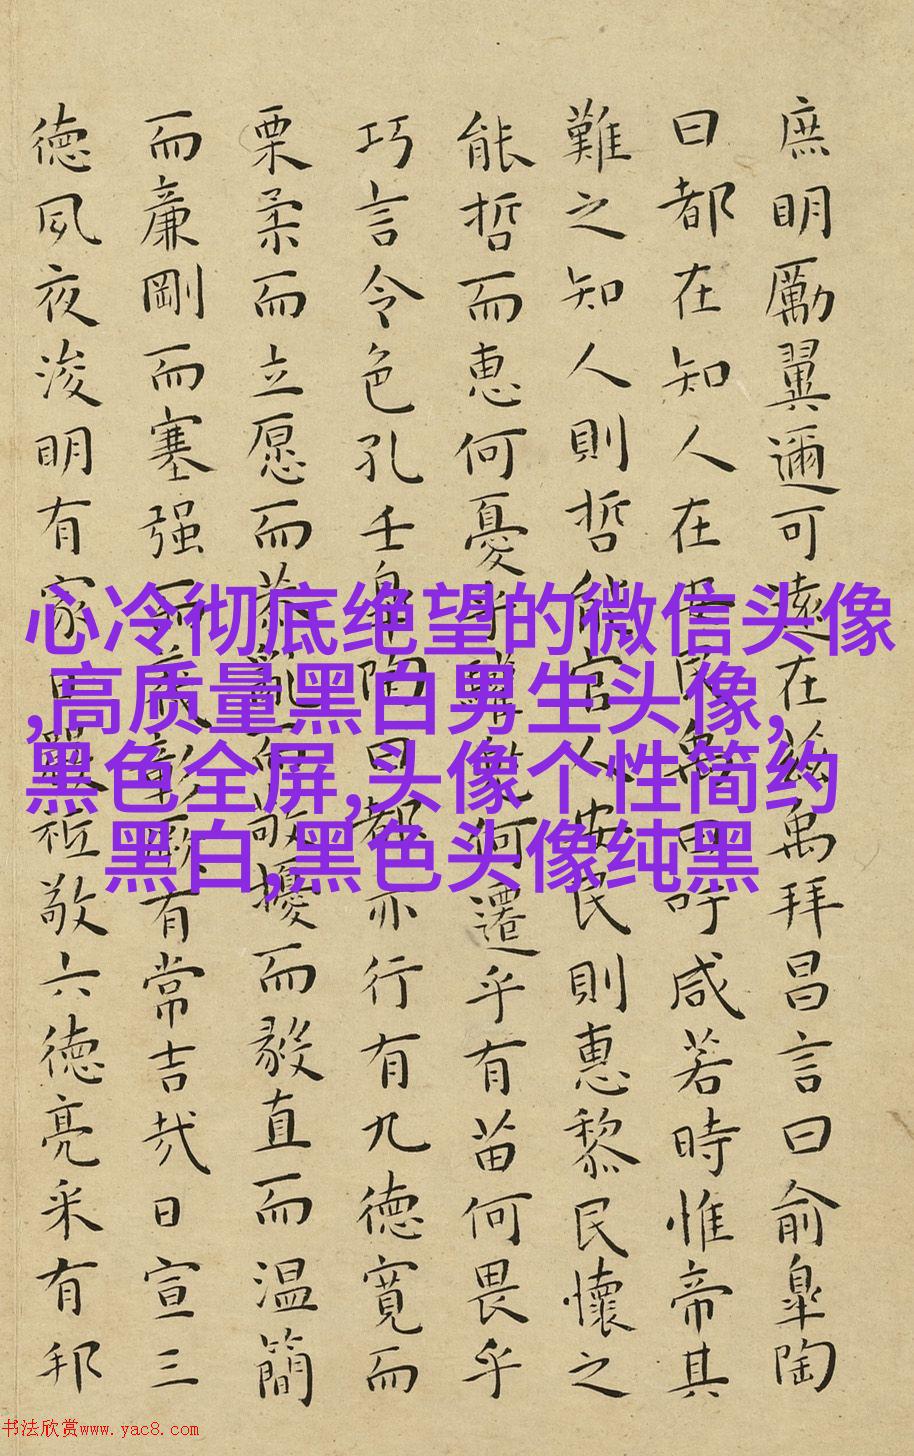 庶明勵翼邇可遠在茲禹拜昌言曰俞臯陶
曰都在知人在安民禹曰吁咸若時惟帝其
難之知人則哲能官人安民則惠黎民懷之
能哲而惠何憂乎驩兜何遷乎有苗何畏乎
巧言令色孔壬臯陶曰都亦行有九德寬而
栗柔而立愿而恭亂而敬擾而毅直而温簡
而廉剛而塞强而義彰厥有常吉哉日宣三
德夙夜浚明有家日嚴祗敬六德亮采有邦
心冷彻底绝望的微信头像
,高质量黑白男生头像,
黑色全屏,头像个性简约
黑白,黑色头像纯黑
书法欣赏www.yac8.com